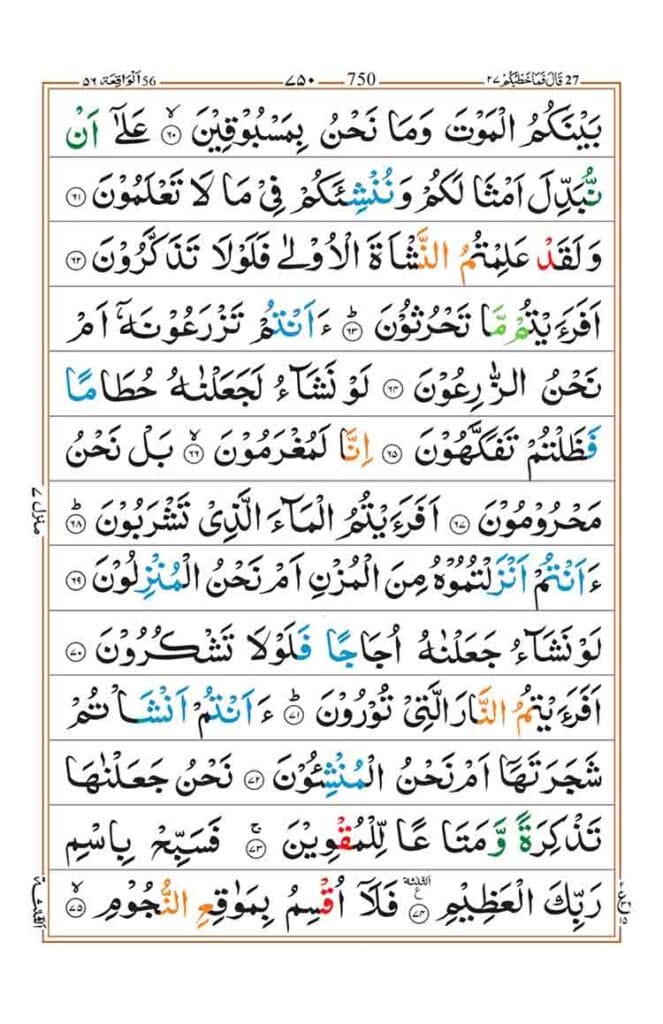 27 قَالَ فَمَا خَطْبُكُمْ ٢٧
750 ٧٥٠
56 اَلْوَاقِعَة ٥٦
بَيْنَكُمُ الْمَوْتَ وَمَا نَحْنُ بِمَسْبُوْقِيْنَ ۙ‏﴿۶۰﴾ عَلٰٓى اَنْ
نُّبَدِّلَ اَمْثَا لَـكُمْ وَنُـنْشِئَكُمْ فِىْ مَا لَا تَعْلَمُوْنَ ﴿۶۱﴾
وَلَـقَدْ عَلِمْتُمُ النَّشْاَةَ الْاُوْلٰى فَلَوْلَا تَذَكَّرُوْنَ ﴿۶۲﴾
اَفَرَءَيْتُمْ مَّا تَحْرُثُوْنَ ؕ ﴿۶۳﴾ ءَاَنْتُمْ تَزْرَعُوْنَهٗۤ اَمْ
نَحْنُ الزّٰرِعُوْنَ ﴿۶۴﴾ لَوْ نَشَآءُ لَجَعَلْنٰهُ حُطَامًا
فَظَلْتُمْ تَفَكَّهُوْنَ ﴿۶۵﴾ اِنَّا لَمُغْرَمُوْنَ ۙ ﴿۶۶﴾ بَلْ نَحْنُ
مَحْرُوْمُوْنَ ﴿۶۷﴾ اَفَرَءَيْتُمُ الْمَآءَ الَّذِىْ تَشْرَبُوْنَ ؕ ﴿۶۸﴾
ءَاَنْتُمْ اَنْزَلْـتُمُوْهُ مِنَ الْمُزْنِ اَمْ نَحْنُ الْمُنْزِلُوْنَ ﴿۶۹﴾
لَوْ نَشَآءُ جَعَلْنٰهُ اُجَاجًا فَلَوْلَا تَشْكُرُوْنَ ﴿۷۰﴾
اَفَرَءَيْتُمُ النَّارَ الَّتِىْ تُوْرُوْنَ ؕ ﴿۷۱﴾ ءَاَنْتُمْ اَنْشَاْتُمْ
شَجَرَتَهَاۤ اَمْ نَحْنُ الْمُنْشِـُٔوْنَ ﴿۷۲﴾ نَحْنُ جَعَلْنٰهَا
تَذْكِرَةً وَّمَتَا عًا لِّلْمُقْوِيْنَ ۚ ﴿۷۳﴾ فَسَبِّحْ بِاسْمِ
رَبِّكَ الْعَظِيْمِ ﴿۷۴﴾ الثلثة فَلَاۤ اُقْسِمُ بِمَوٰقِعِ النُّجُوْمِ ۙ ﴿۷۵﴾
منزل ٧
الثلثة